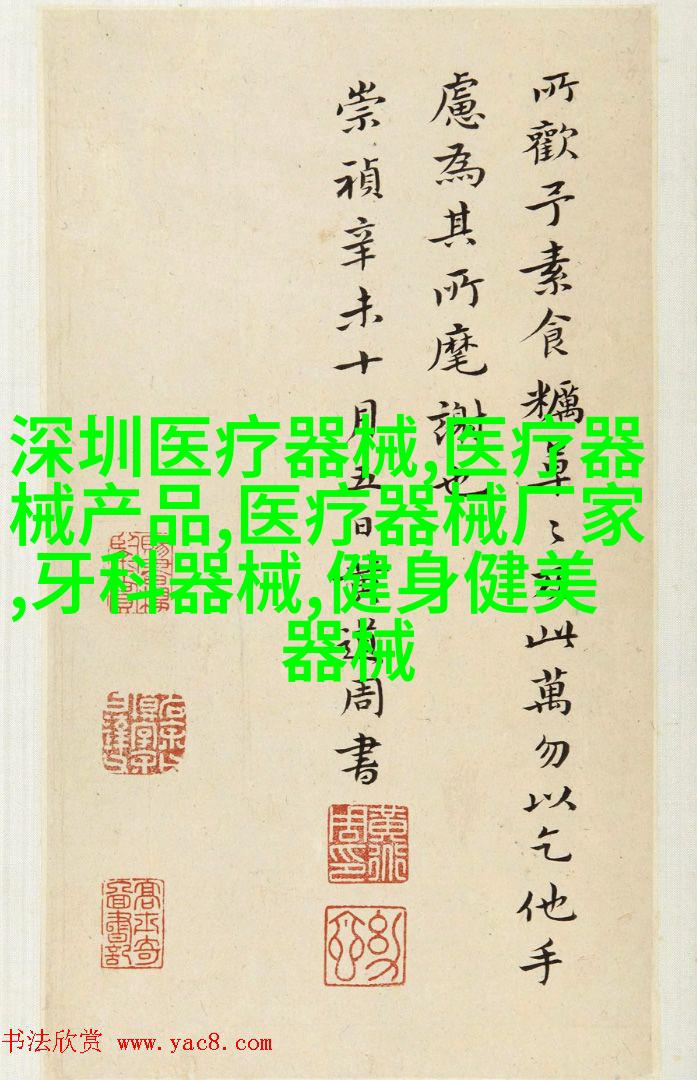 所歡予素食糲草〻此萬勿以乞他手
慮為其所麾謝也
崇禎辛未十月五日黃道周書
深圳医疗器械,医疗器
械产品,医疗器械厂家
,牙科器械,健身健美
器械
高士奇圖書記
书法欣赏 www.yac8.com